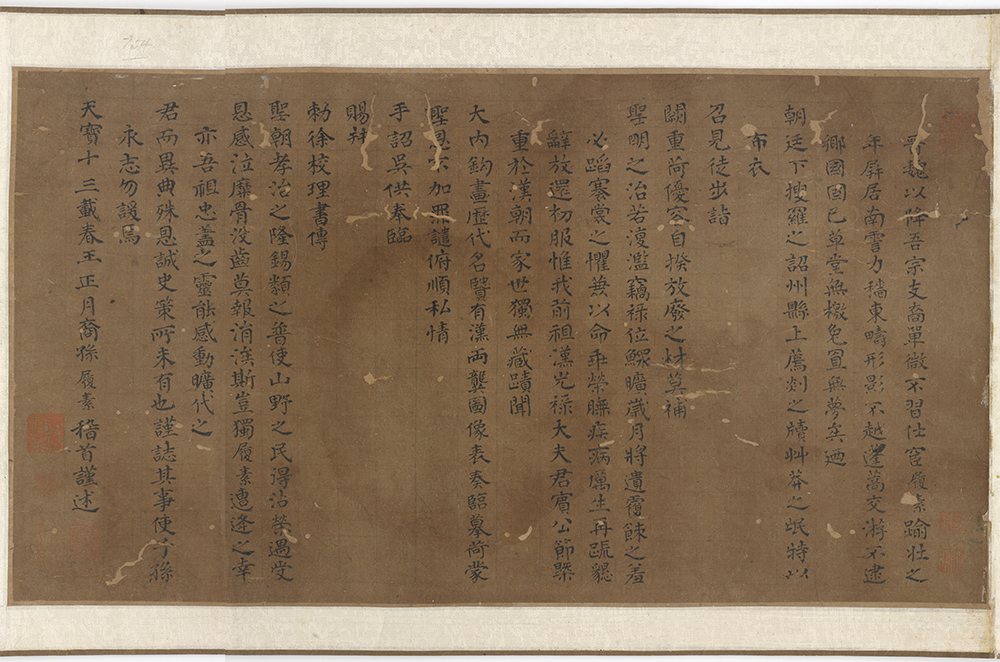 巍以降吾宗支裔單微不習仕宦履素踰壯之
年屏居南雪力穡東疇形影不越蓬蒿交游不逮
鄉國固已草堂無檄兔罝無夢矣迺
朝廷下搜羅之詔州縣上薦剡之牘艸莽之氓特以
布衣
召見徒步詣
闕重荷優容自揆放廢之材莫補
聖明之治若復濫竊祿位鰥曠歲月將遺覆餗之羞
必蹈褰裳之懼兼以命乖榮膴疾病薦生再疏懇
辭放還初服惟我前祖漢光祿大夫君賓公節槩
重於漢朝而家世獨無藏蹟聞
大內鉤畫歷代名賢有漢兩龔圖像表奏臨摹荷蒙
聖恩不加罪譴俯順私情
手詔吳供奉臨
賜并
勅徐校理書傳
聖朝孝治之隆錫類之普使山野之民得沾榮遇受
恩感泣靡骨沒齒莫報涓涘斯豈獨履素遭逢之幸
亦吾祖忠藎之靈能感動曠代之
君而異典殊恩誠史策所未有也謹誌其事使子孫
永志勿諼焉
天寶十三載春王正月裔孫履素稽首謹述